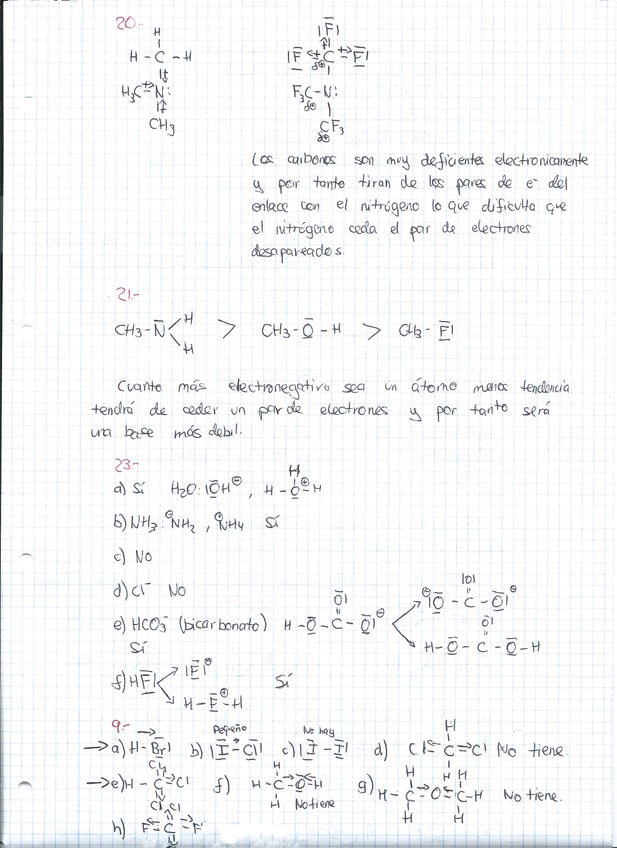 20.-
H |F̅|
H - C - H |F̅ C F̅| δ⊕
H₃C N: F₃C - N: δ⊕
CH₃ CF₃ δ⊕
Los carbonos son muy deficientes electronicamente
y por tanto tiran de los pares de e⁻ del
enlace con el nitrógeno lo que dificulta que
el nitrógeno ceda el par de electrones
desapareados.
21.-
CH₃ - N̅ H H > CH₃ - O̅ - H > CH₃ - F̅|
Cuanto más electronegativo sea un átomo menos tendencia
tendrá de ceder un par de electrones y por tanto será
una base más debil.
23.-
a) Sí H₂O: |O̅H⊖ , H - O⊕ - H H
b) NH₃: ⊖NH₂ , ⊕NH₄ Sí
c) No
d) Cl⁻ No
e) HCO₃⁻ (bicarbonato) H - O̅ - C - O̅|⊖ O̅| ⊖|O̅ - C - O̅|⊖ |O|
Sí H - O̅ - C - O̅ - H O̅|
f) HF̅| |F̅|⊖ H - F̅⊕ - H Sí
9.-
→ a) H - Br| b) |I̅ - Cl| Pequeño c) |I̅ - I̅| No hay d) Cl C Cl H H No tiene.
→ e) H - C Cl Cl Cl f) H - C O H H H No tiene g) H - C O C - H H H H H No tiene.
h) F C F Cl